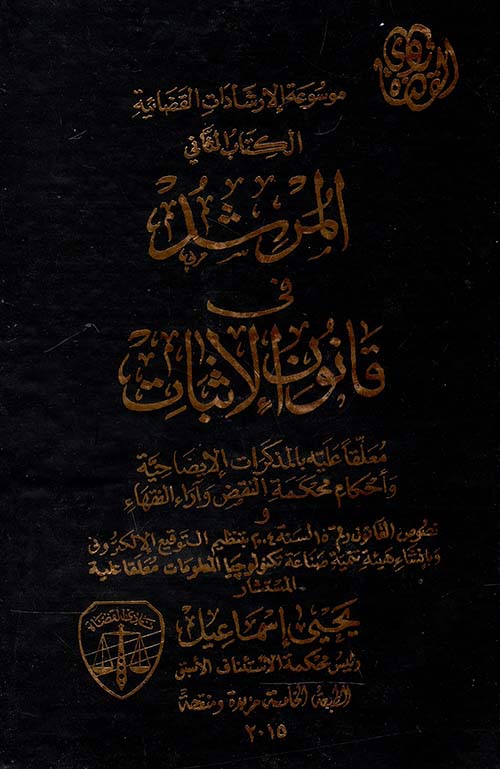 موسوعة الإرشادات القضائية
الكتاب الثاني
المرشد
في
قانون الإثبات
معلقاً عليه بالمذكرات الإيضاحية
وأحكام محكمة النقض وآراء الفقهاء
و
نصوص القانون رقم ١٥ لسنة ٢٠٠٤ بتنظيم التوقيع الإلكتروني
وبإنشاء هيئة تنمية صناعة تكنولوجيا المعلومات معلقا عليه
المستشار
يحيى إسماعيل
نادي القضاة
رئيس محكمة الاستئناف الأسبق
الطبعة الخامسة مزيدة ومنقحة
٢٠١٥